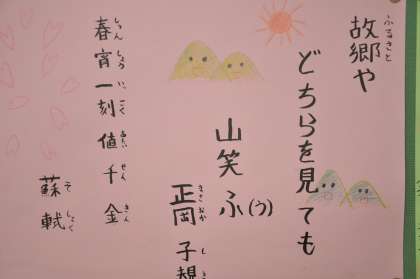 故郷や
ふるさと
どちらを見ても
山笑ふ(う)
正岡 子規
まさおか し
春宵一刻値千金
しゅん しょう いっ こく あたい せん きん
蘇軾
そ しょく